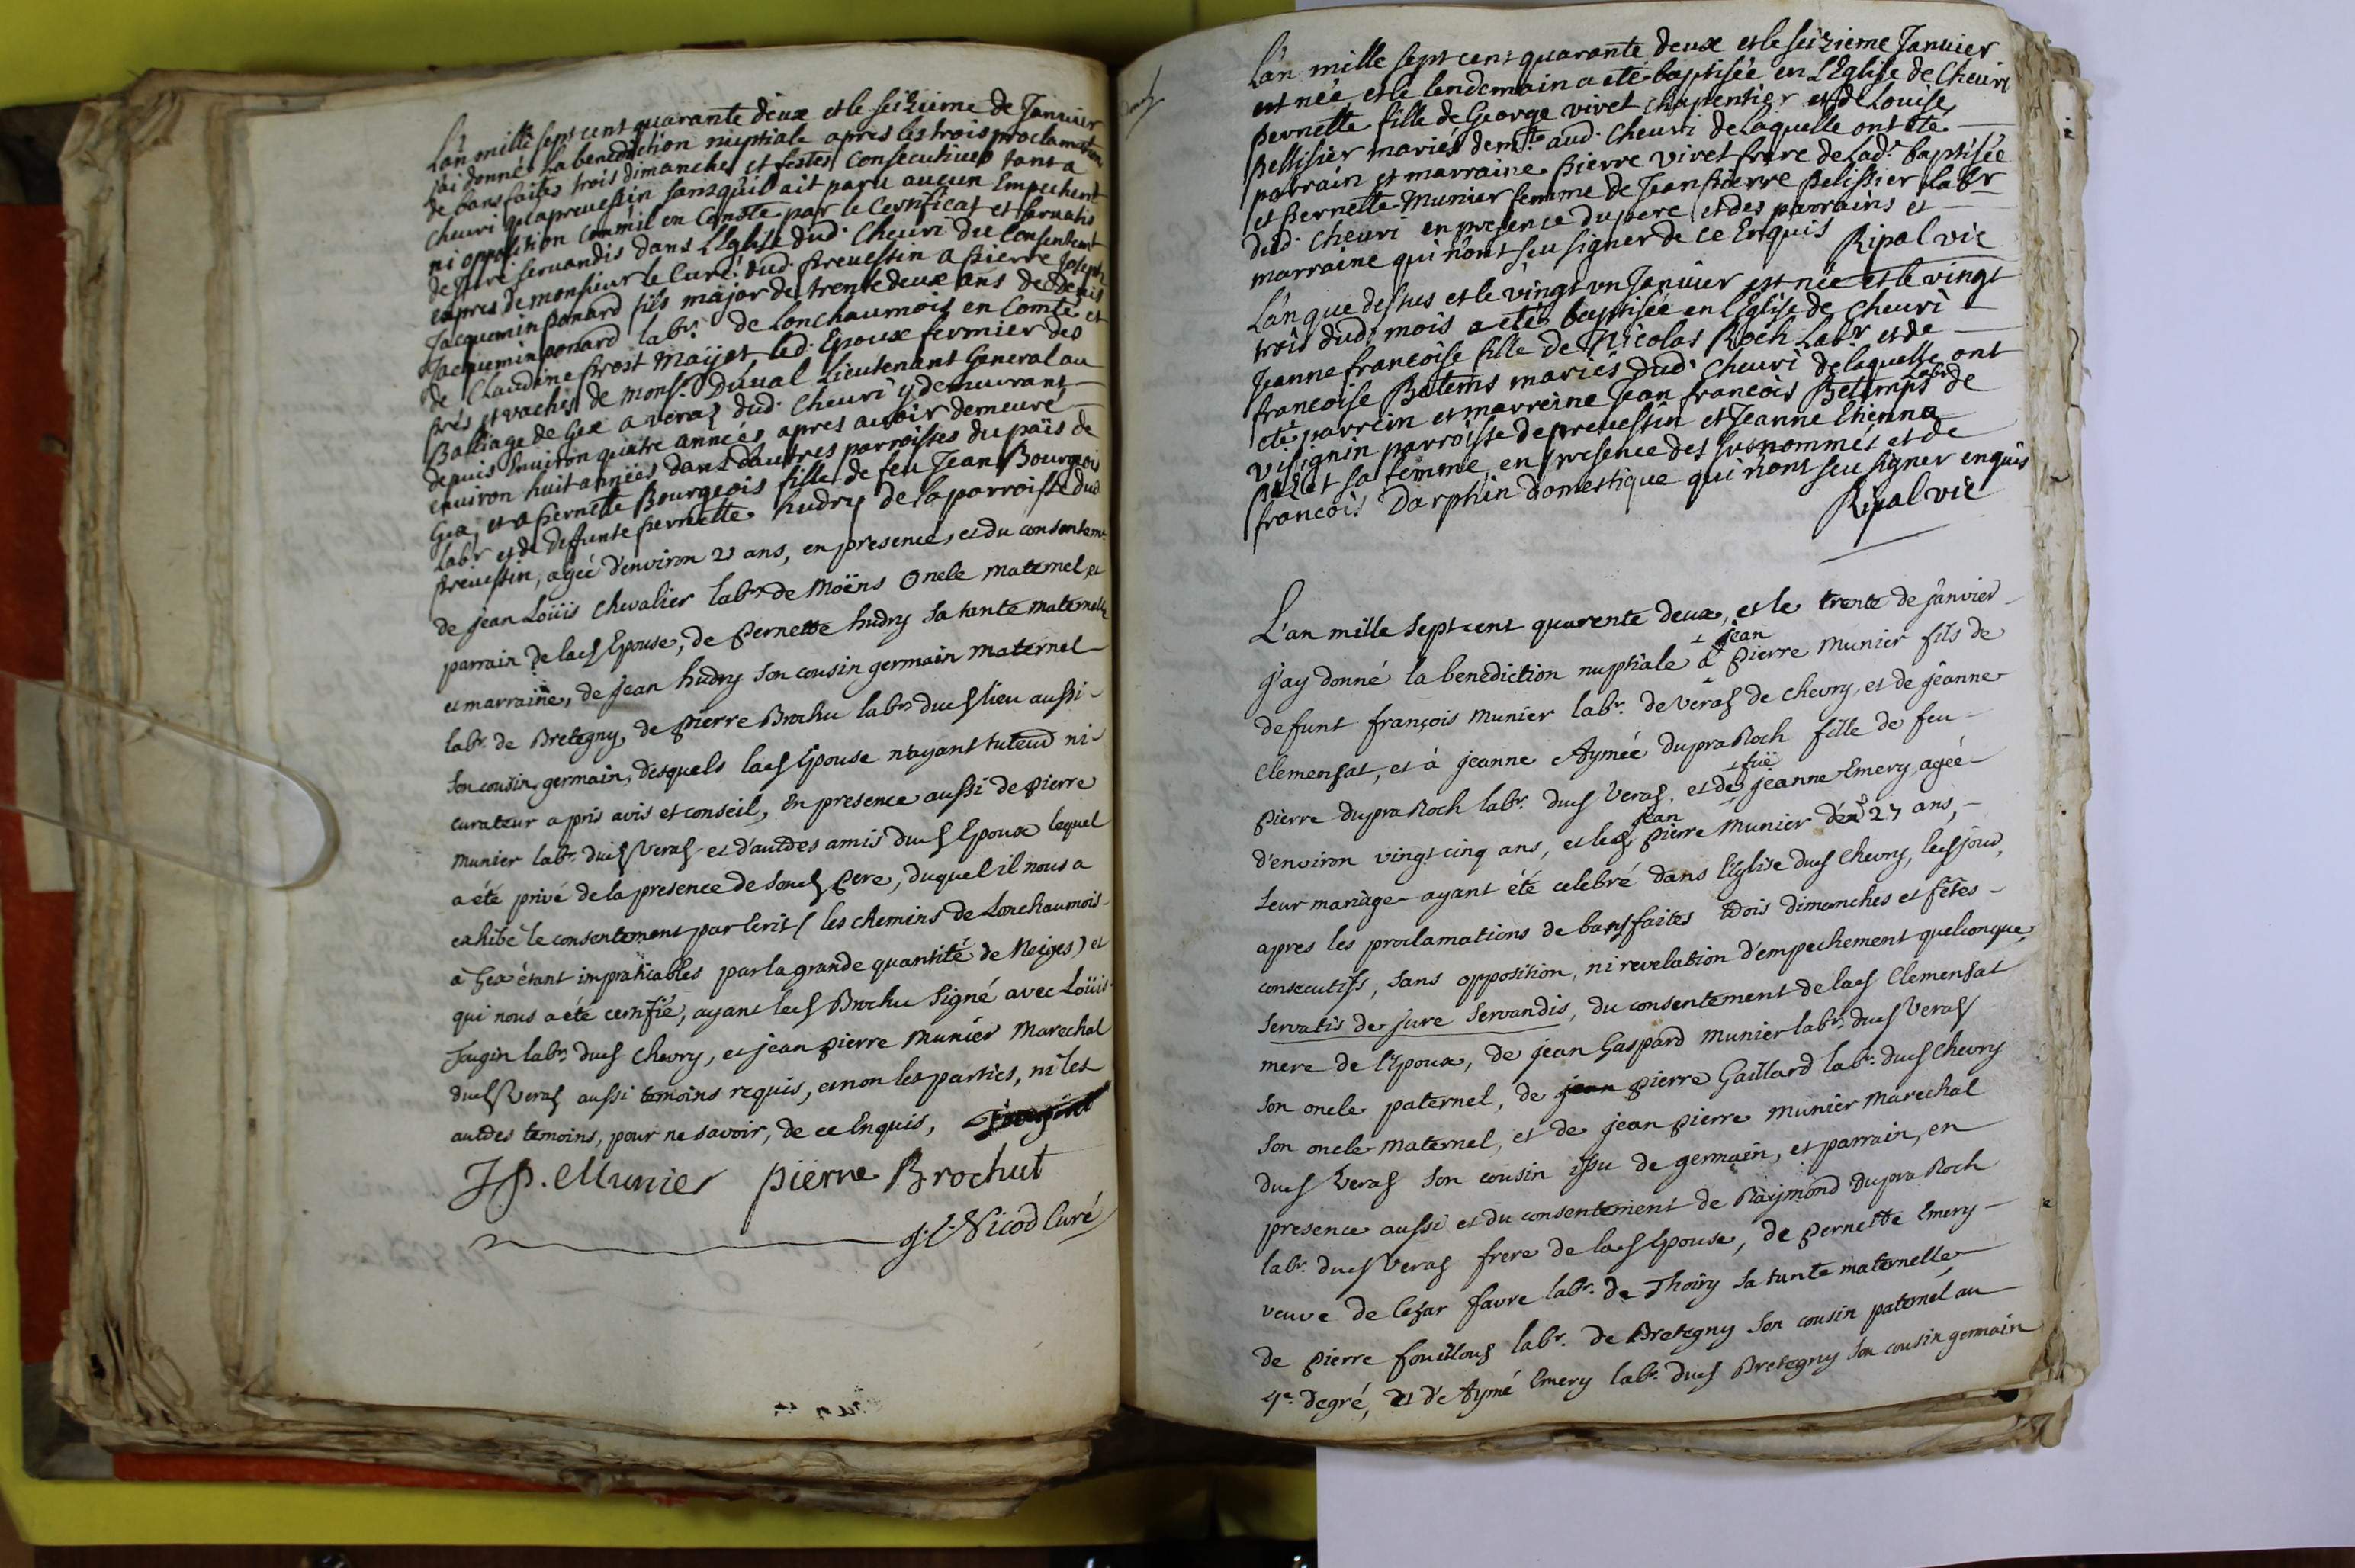 L'an mille sept cent quarante deux et le seizieme de Janvier
j'ai donné la benediction nuptiale apres les trois proclamations
de bans faites trois dimanches et festes consecutives tant a
Cheuri qu'a preuessin sans qu'il ait paru aucun Empechemt
ni opposition comm'il en Conste par le Certificat et servatis
de jure servandis dans L'Eglise dud. Cheuri du Consentement
expres de monsieur le Curé dud. preuessin a pierre Joseph
Jacquemin ponard fils major de trente deux ans de Denis
Jacquemin ponard labr. de Lonchaumois en Comté et
de Claudine prost Maÿet led. Epoux fermier des
prés et vaches de Monsr. Duual Lieutenant General au
Balliage de Gex a veraz dud. Cheuri y demeurant
depuis Enuiron quatre années apres auoir demeuré
enuiron huit années dans d'autres parroisses du païs de
Gex, et a pernette Bourgeois fille de feu Jean Bourgeois
Labr et de deffunte pernette hudry de la parroisse dud
preuessin, agée d'environ 21 ans, en presence, et du consentemt
de jean Loüis Chevalier labr. de Moëns Oncle maternel, et
parrain de lad Epouse, de Pernette hudry sa tante maternelle
et marraine, de jean hudry son cousin germain maternel
labr. de Bretegny, de pierre Brochu labr. dud lieu aussi
son cousin germain, desquels lad Epouse n'ayant tuteur ni
curateur a pris avis et conseil, En presence aussi de Pierre
Munier labr. dud Veraz et d'autres amis dud Epoux lequel
a été privé de la presence de sond Pere, duquel il nous a
exhibé le consentement par Ecrit (les chemins de Lonchaumois
à Gex étant impraticables par la grande quantité de Neiges) et
qui nous a été certifié, ayant led Brochu signé avec Loüis
Jougin labr. dud Chevry, et jean pierre Munier Marechal
dud Veraz aussi temoins requis, et non les parties, ni les
autres temoins, pour ne savoir, de ce Enquis,
J P. Munier pierre Brochut
Nicod Curé
L'an mille sept cent quarante deux et le seizieme Janvier
est née et le lendemain a eté baptisée en L'Eglise de Cheuri
pernette fille de George vivet Chapentier et de Louise
pellisier mariés demts. aud. Cheuri de laquelle ont eté
parrain et marraine pierre vivet frere de lade. baptisée
et pernette Munier femme de Jean pierre pelissier labr
dud. Cheuri en presence du pere et des parrains et
marraine qui n'ont seu signer de ce Enquis Ripal vic
L'an que dessus et le vingt un Janvier est née et le vingt
trois dud. mois a eté baptisée en L'Eglise de Cheuri
Jeanne francoise fille de Nicolas Roch Labr et de
francoise Batems mariés dud. Cheuri de laquelle ont
eté parrein et marreine Jean francois Betemps labr de
Visignin parroisse de preuessin et Jeanne Etienna
sa femme en presence des susnommés et de
francois Darphin domestique qui n'ont seu signer enquis
Ripal vic
L'an mille sept cent quarente deux, et le trente de janvier
j'ay donné la benediction nuptiale à jean Pierre Munier fils de
defunt françois Munier labr. de Veraz de Chevry, et de jeanne
Clemensat, et à jeanne Aymée Dupra Roch fille de feu
Pierre Dupra Roch labr. dud Veraz, et de füe jeanne Emery, agée
d'environ vingt cinq ans, et led jean Pierre Munier d'en 27 ans,
leur mariage ayant été celebré dans l'Eglise dud Chevry, led jour,
apres les proclamations de bans faites trois dimenches et fêtes
consecutifs, sans opposition, ni revelation d'empechement quelconque,
servatis de jure servandis, du consentement de lad Clemensat
mere de l'Epoux, de jean Gaspard Munier labr. dud Veraz
son oncle paternel, de jean pierre Gaillard labr. dud Chevry
son oncle maternel, et de jean pierre Munier Marechal
dud Veraz son cousin issu de germain, et parrain, en
presence aussi et du consentement de Raymond Dupra Roch
labr. dud Veraz frere de lad Epouse, de Pernette Emery
veuve de Cesar Favre labr. de Thoiry sa tante maternelle,
de Pierre Fouilloux labr. de Bretegny son cousin paternel au
4e. degré, et d'Aymé Emery labr. dud Bretegny son cousin germain